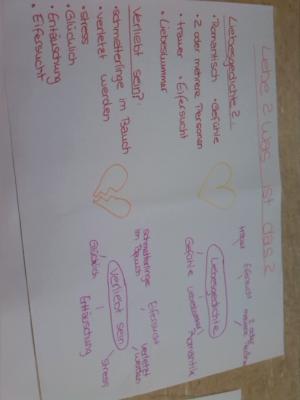 Liebe? Was ist das?
Liebesgeschichte?
• Romantisch • Gefühle
• 2 oder mehrere Personen
• trauer • Eifersucht
• Liebeskummer
Verliebt sein?
• schmetterlinge im Bauch
• verletzt werden
• stress
• Glücklich
• Entäuschung
• Eifersucht
trauer
Eifersucht
2 oder
mehrere Personen
Liebesgeschichte
Gefühle
Liebeskummer
Romantik
schmetterlinge
im Bauch
Eifersucht
verletzt
werden
Verliebt sein
Glücklich
Entäuschung
stress